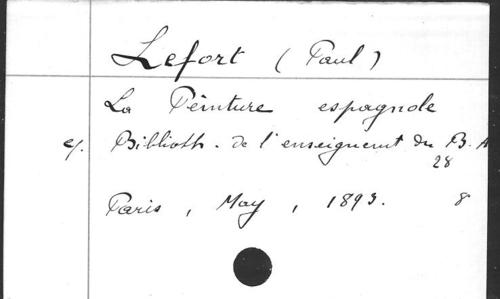 Lefort (Paul)
La Peinture espagnole
ej. Biblioth. de l'enseignemt du B. A
28
Paris, May, 1893. 8